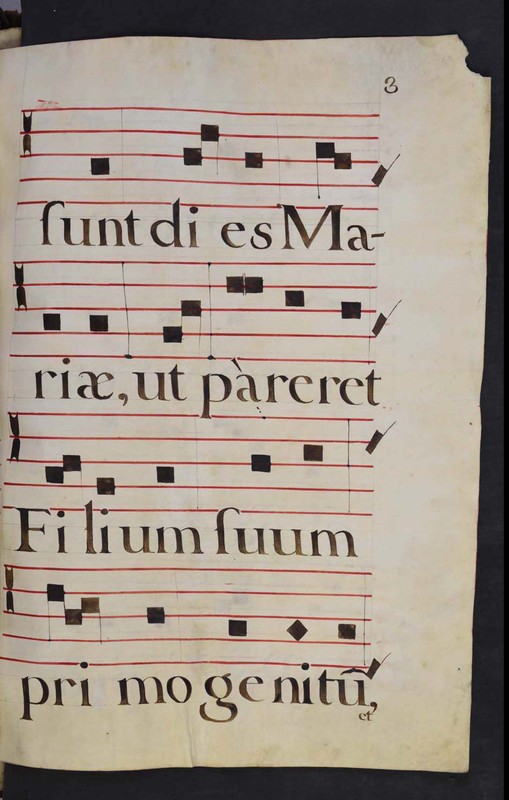 3
ſunt di es Ma-
riæ, ut pàreret
Fi li um ſuum
pri mo ge nitū,
et